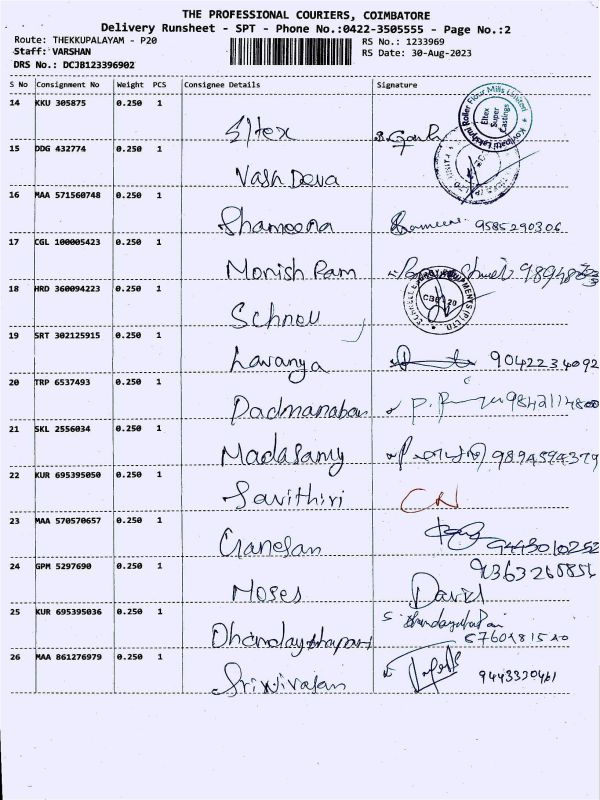 THE PROFESSIONAL COURIERS, COIMBATORE
Delivery Runsheet - SPT - Phone No.:0422-3505555 - Page No.:2
Route: THEKKUPALAYAM - P20 RS No.: 1233969
Staff: VARSHAN RS Date: 30-Aug-2023
DRS No.: DCJB123396902
S No Consignment No Weight PCS Consignee Details Signature
14 KKU 305875 0.250 1 Eltex
Kovilpatti Lakshmi Roller Flour Mills Limited
Eltex Super Castings
15 DDG 432774 0.250 1 Vasu Deva
16 MAA 571560748 1 0.250 1 Shameena 9585290306
17 CGL 100005423 0.250 1 Monish Ram
18 HRD 360094223 0.250 1 Schnell
19 SRT 302125915 0.250 1 Lavanya 9042234092
20 TRP 6537493 0.250 1 Padmanaban
21 SKL 2556034 0.250 1 Madasamy 9894594379
22 KUR 695395050 0.250 1 Savithiri CN
23 MAA 570570657 0.250 1 Ganesan 9443010252
24 GPM 5297690 0.250 1 Moses David
25 KUR 695395036 0.250 1 Dhandayuthapani
26 MAA 861276979 0.250 1 Srinivasan 9443320461